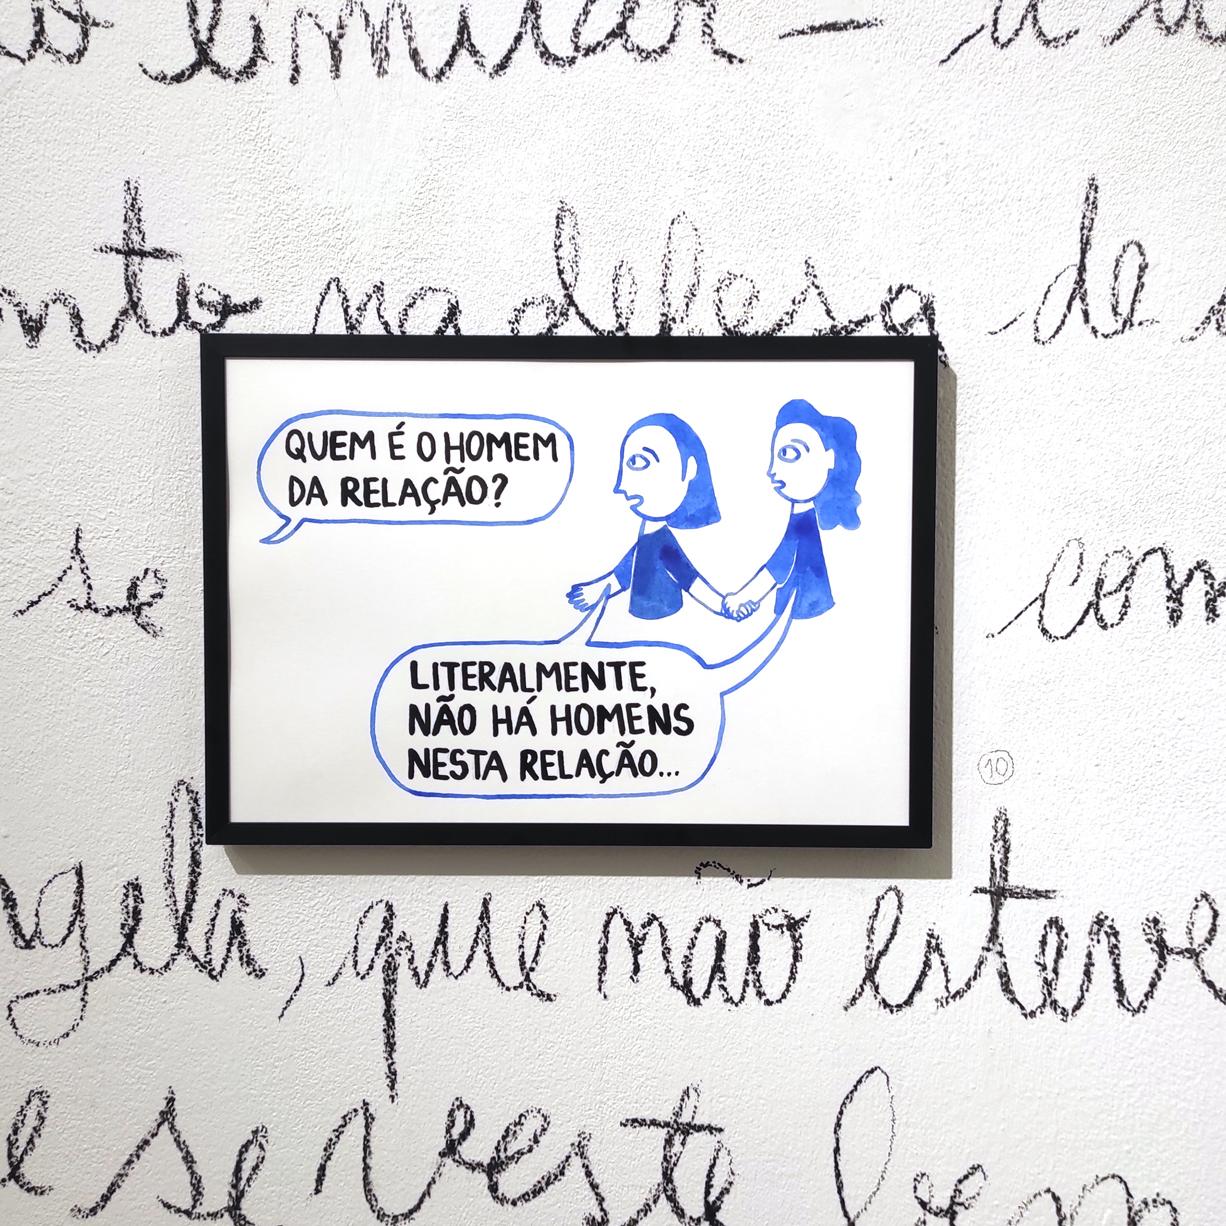 limitar –
na defesa de
QUEM É O HOMEM
DA RELAÇÃO?
se
com
LITERALMENTE,
NÃO HÁ HOMENS
NESTA RELAÇÃO...
10
, que não esteve
e se veste bem